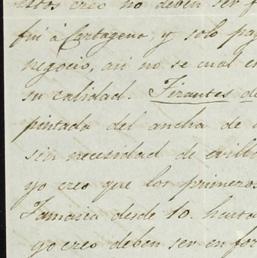 estos creo no deben ser f
fui à Cartagena, y solo pa
negocio, asi no se cual e
su calidad. Tirantes de
pintada del ancha de
sin necesidad de
yo creo que los primeros
Jamaica desde 10. hasta
yo creo deben ser en for